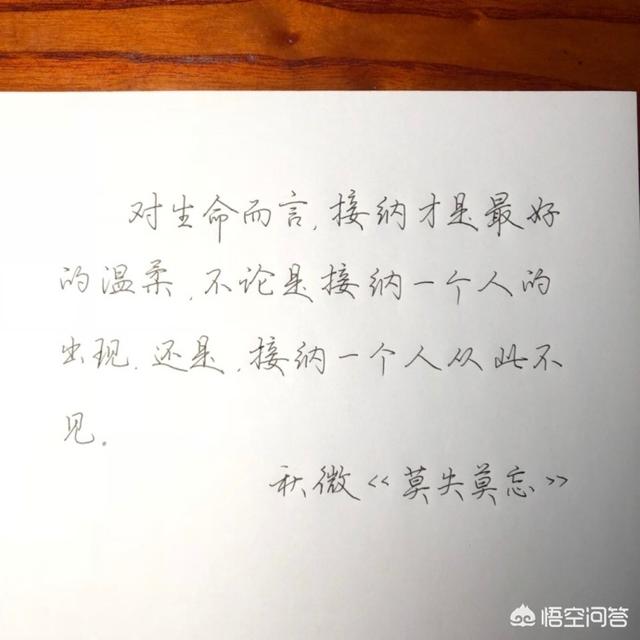 对生命而言,接纳才是最好
的温柔,不论是接纳一个人的
出现.还是,接纳一个人从此不
见。
秋微《莫失莫忘》
悟空问答